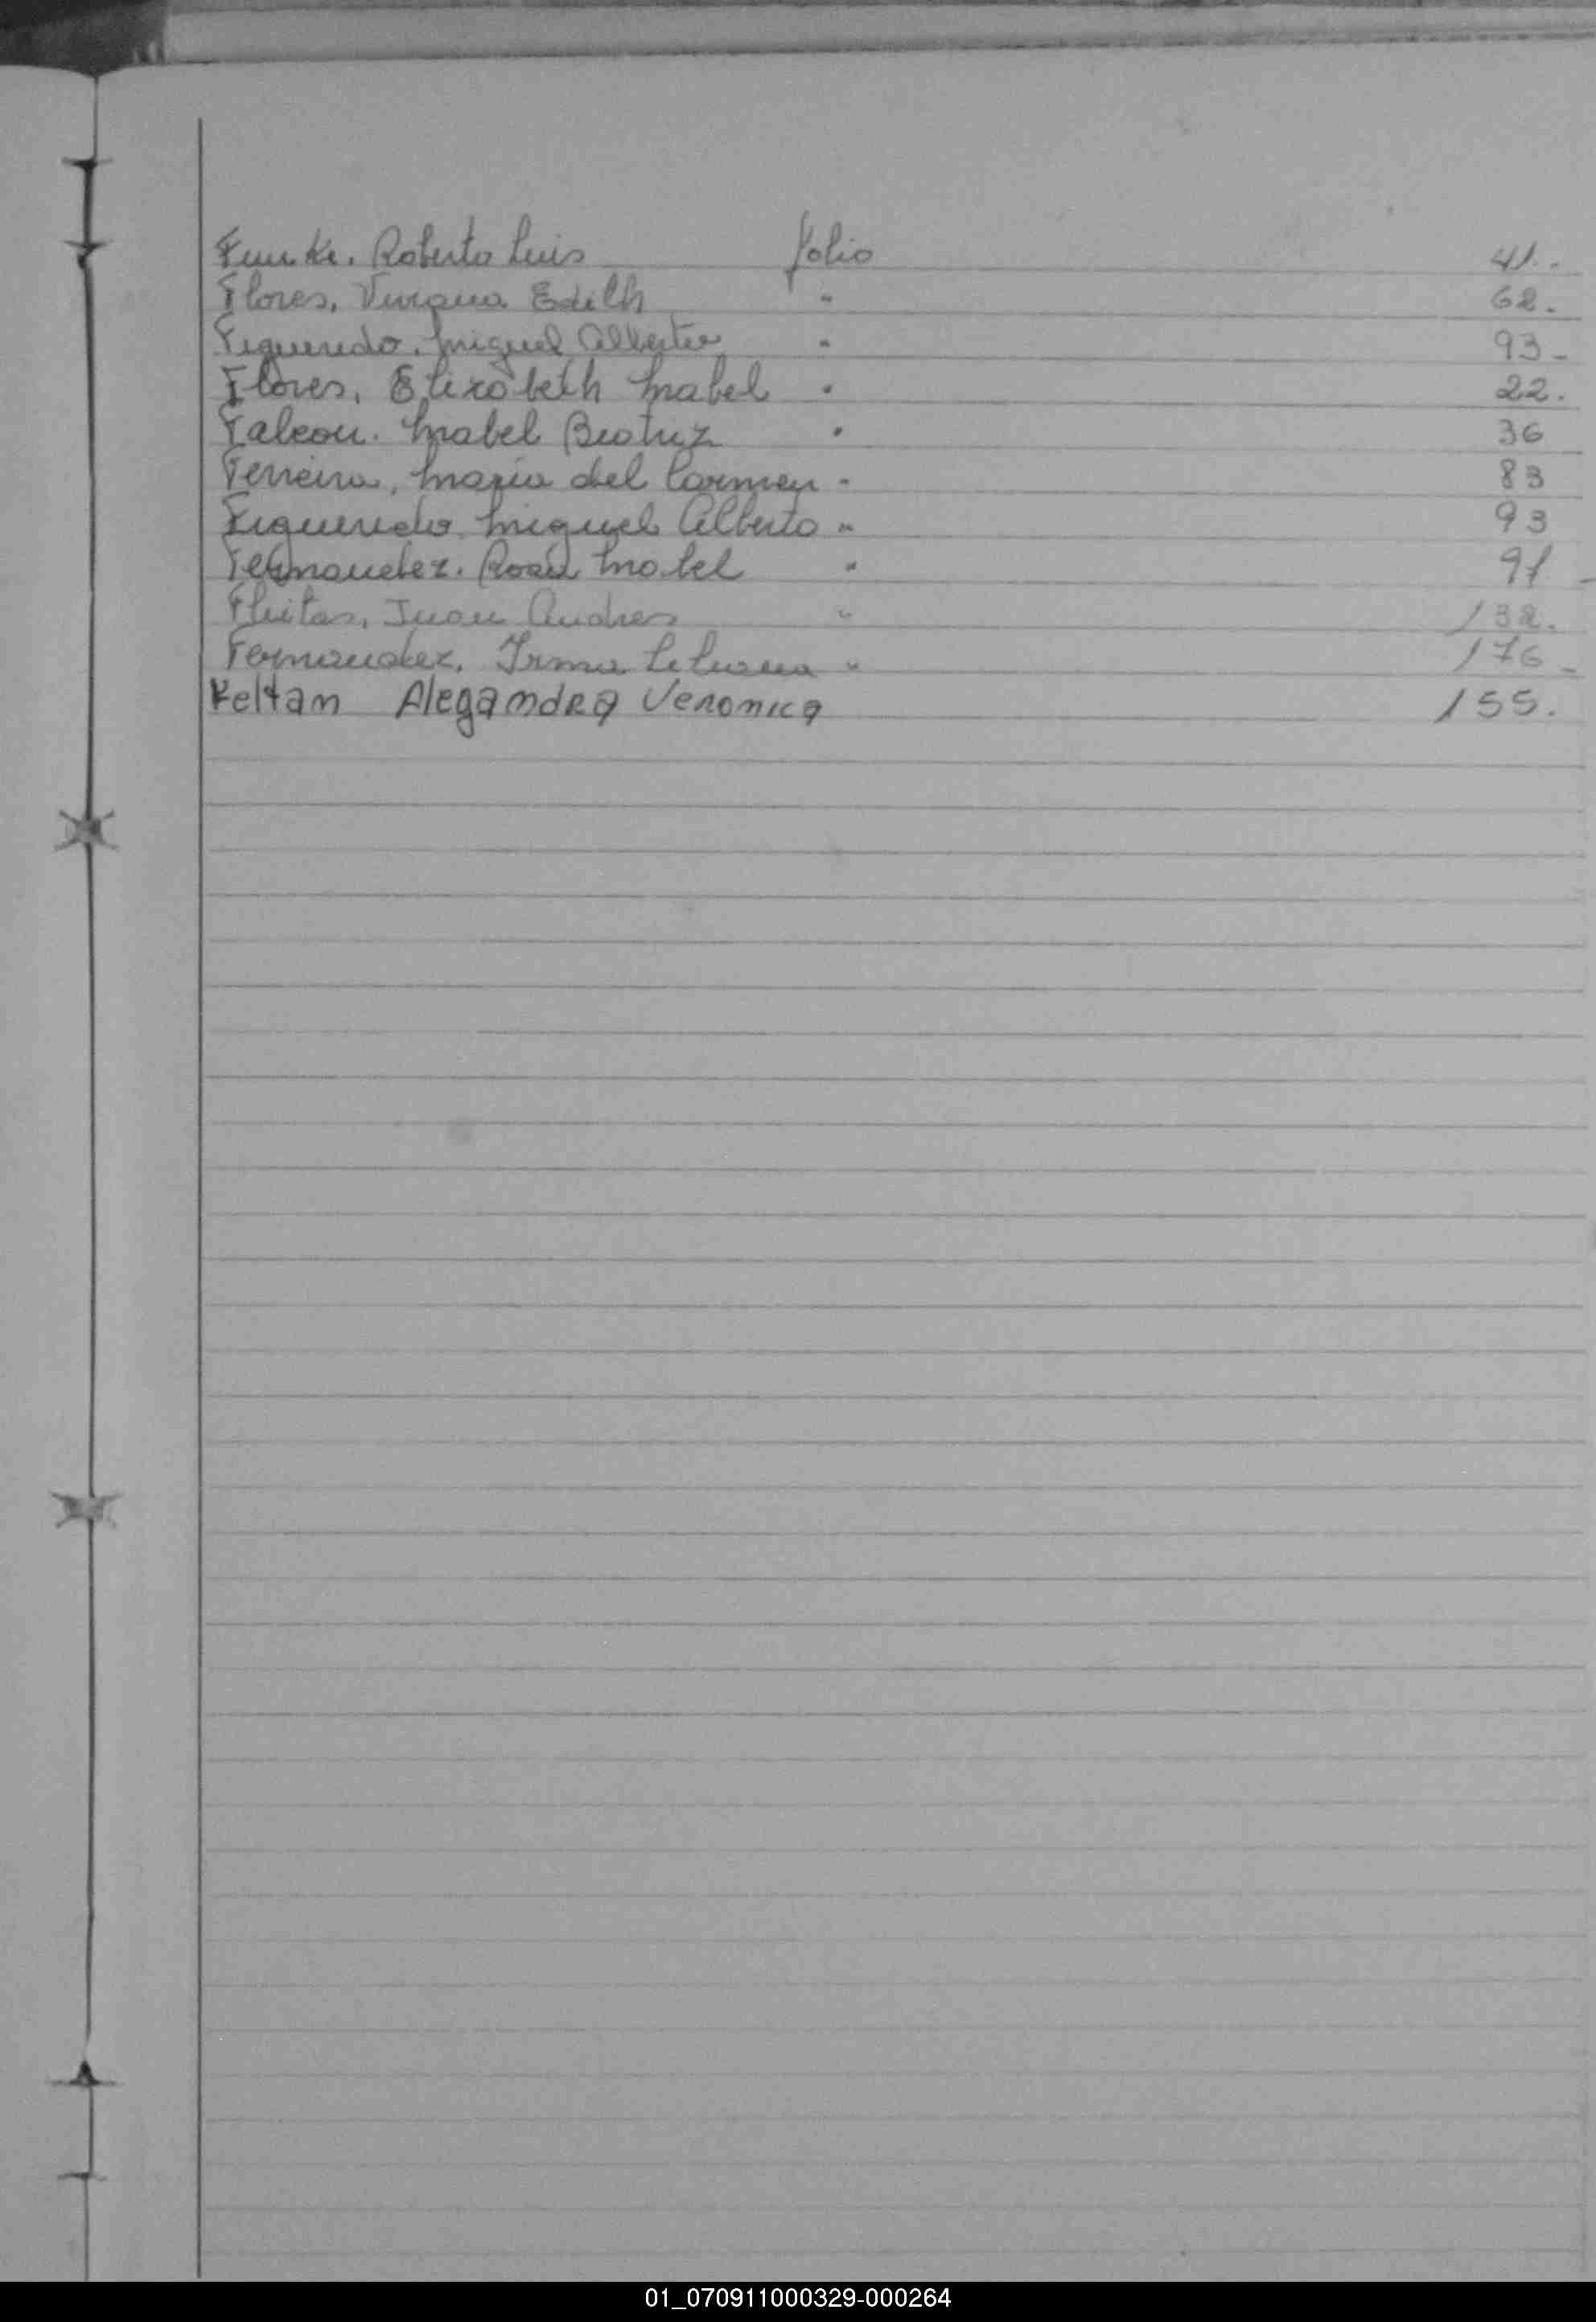 Funke. Roberto Luis folio 41.-
Flores, Viviana Edith " 62.
Figueredo. Miguel Alberto " 93-
Flores, Elizabeth Mabel " 22.
Falcon. Mabel Beatriz " 36
Ferreira, Maria del Carmen " 83
Figueredo Miguel Alberto " 93
Fernandez. Rosa Mabel " 91-
Fleitas, Juan Andres " 132.
Fernandez, Irma " 176-
Feltan Alegandra Veronica 155.
01_070911000329-000264